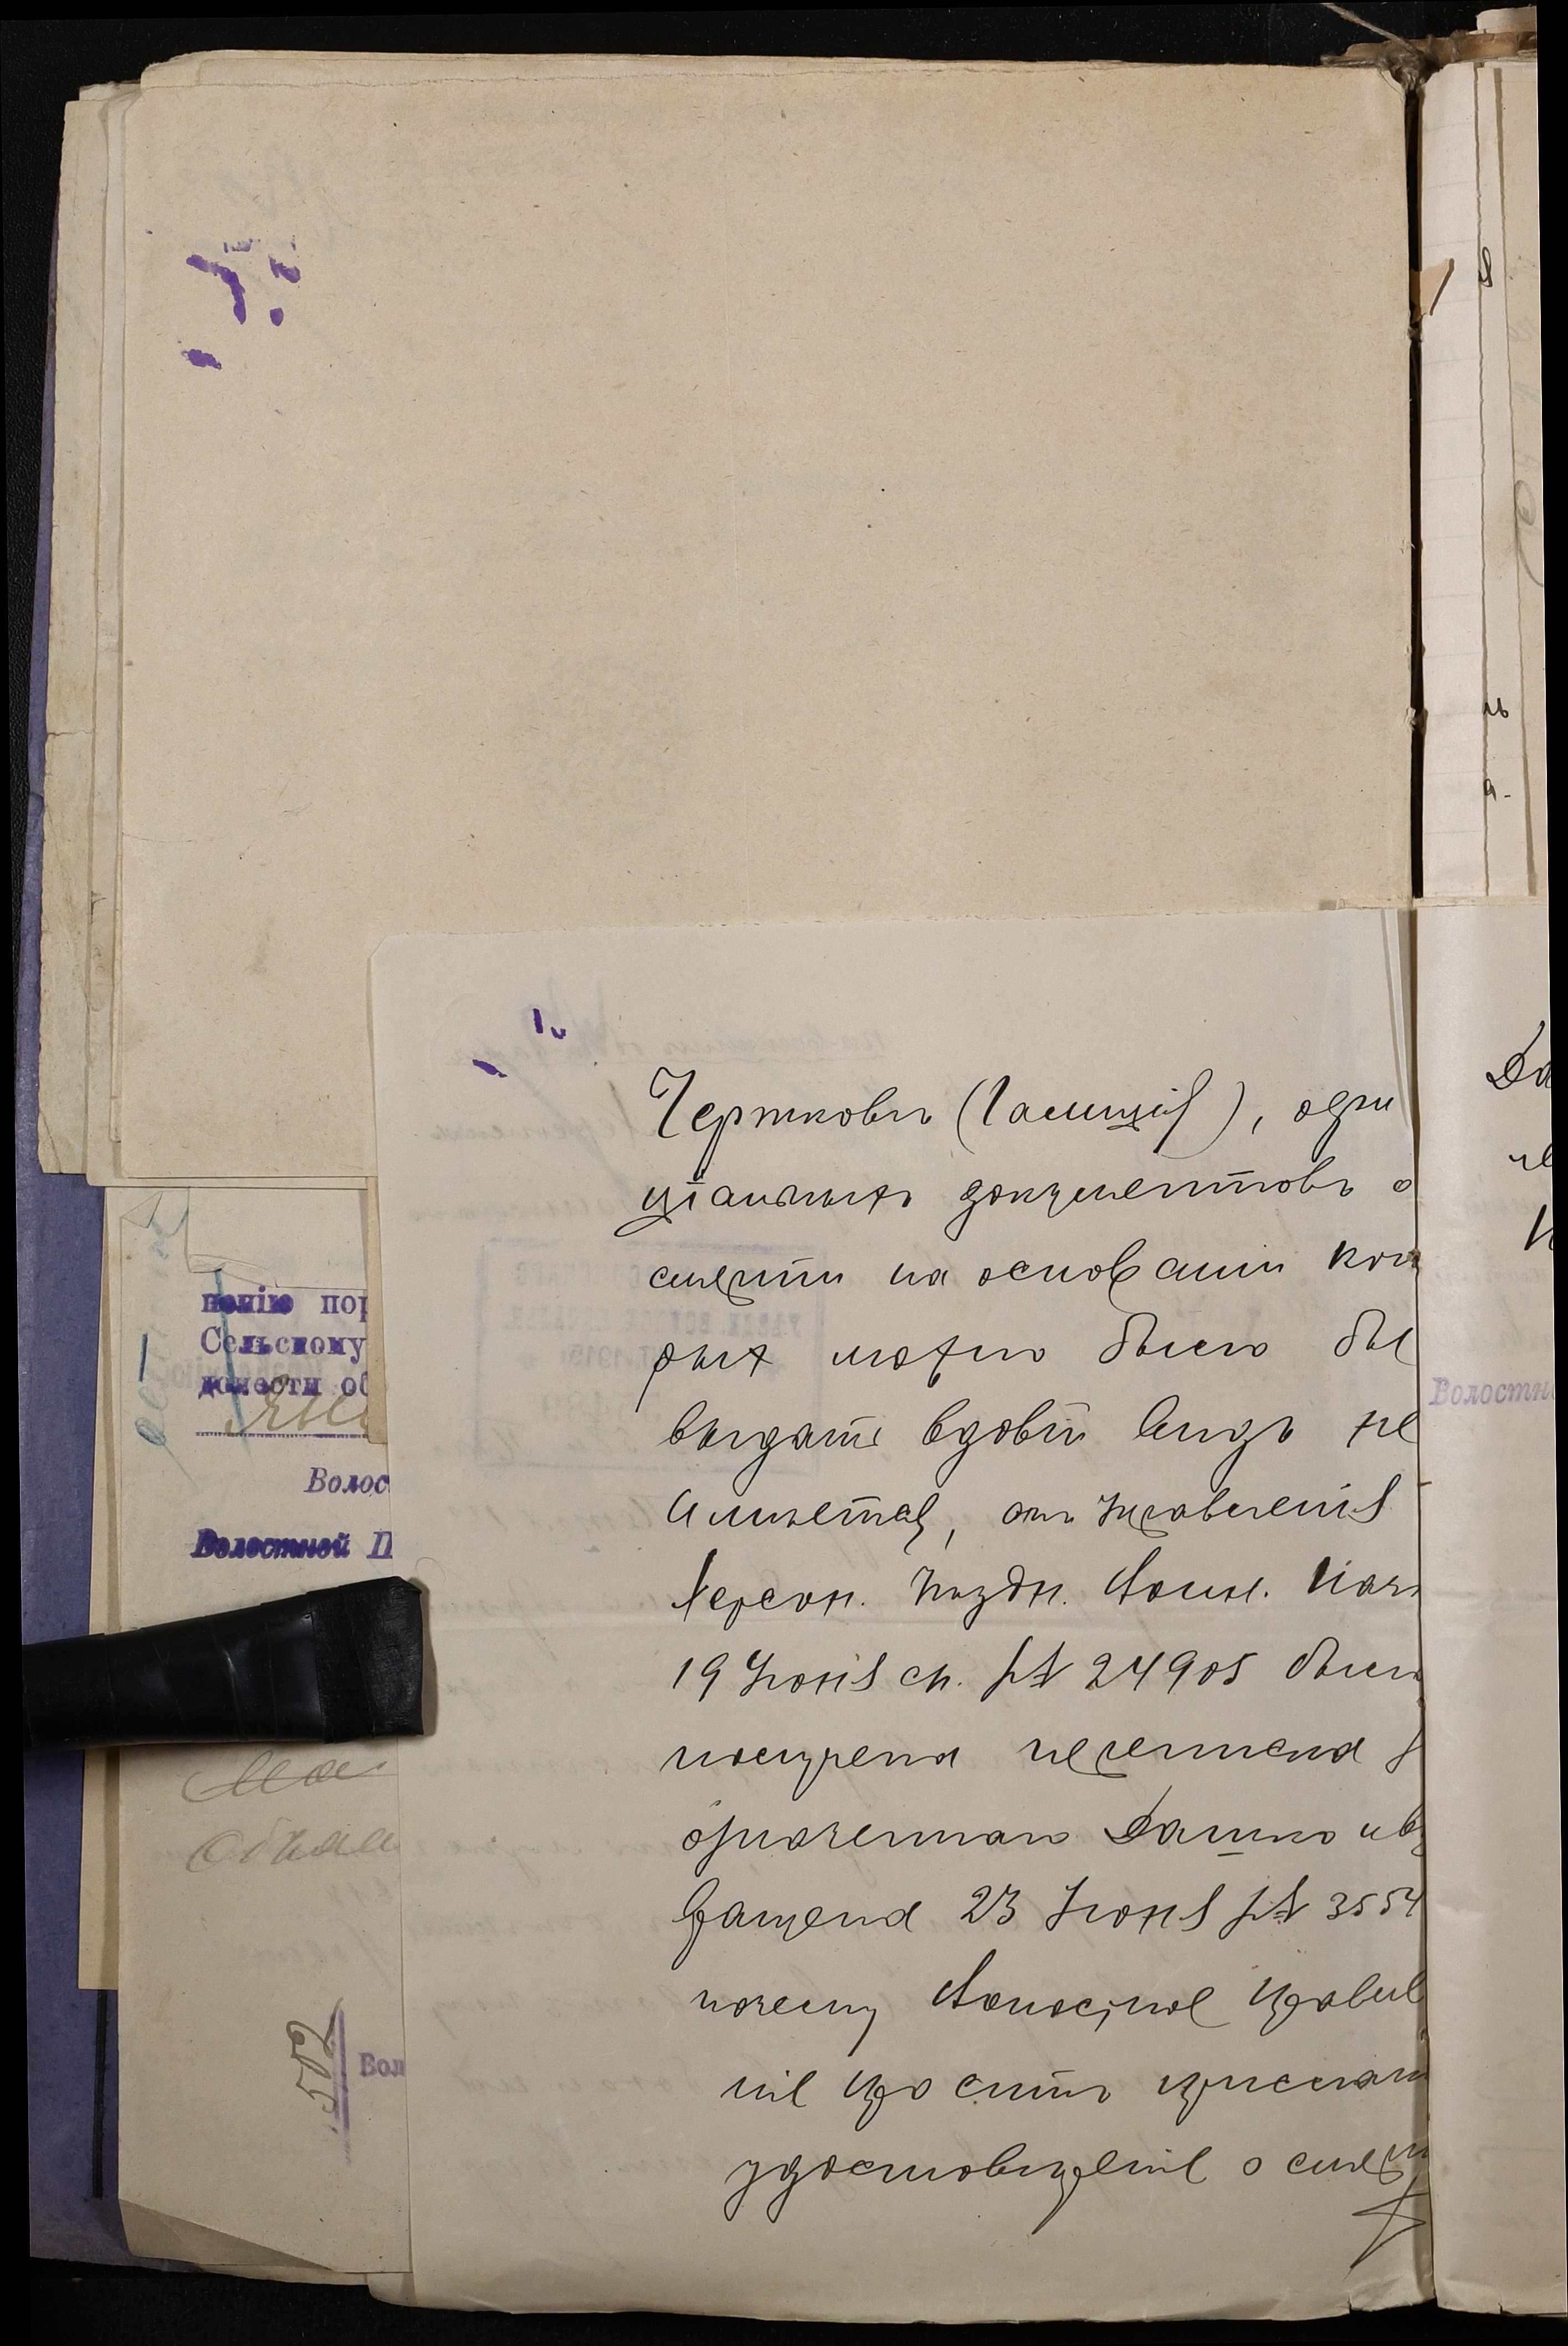 Чертковъ (Галиція), офи
ціальныхъ документовъ о
смерти на основаніи кот
рых можно было бы
выдать вдовѣ видъ не
имѣется, отъ Управленія
Херсон. Уѣздн. Воин. Нач
19 Іюня сн. № 24905 была
получена переписка
означеннаго Дашко и в
вращена 23 Іюня № 3554
почему Волостное Правле
ніе просить прислать
удостовѣреніе о смерт
ненію пор
Сельскому
донести об
Волос
Волостной П
502
Вол
Да
Волостн